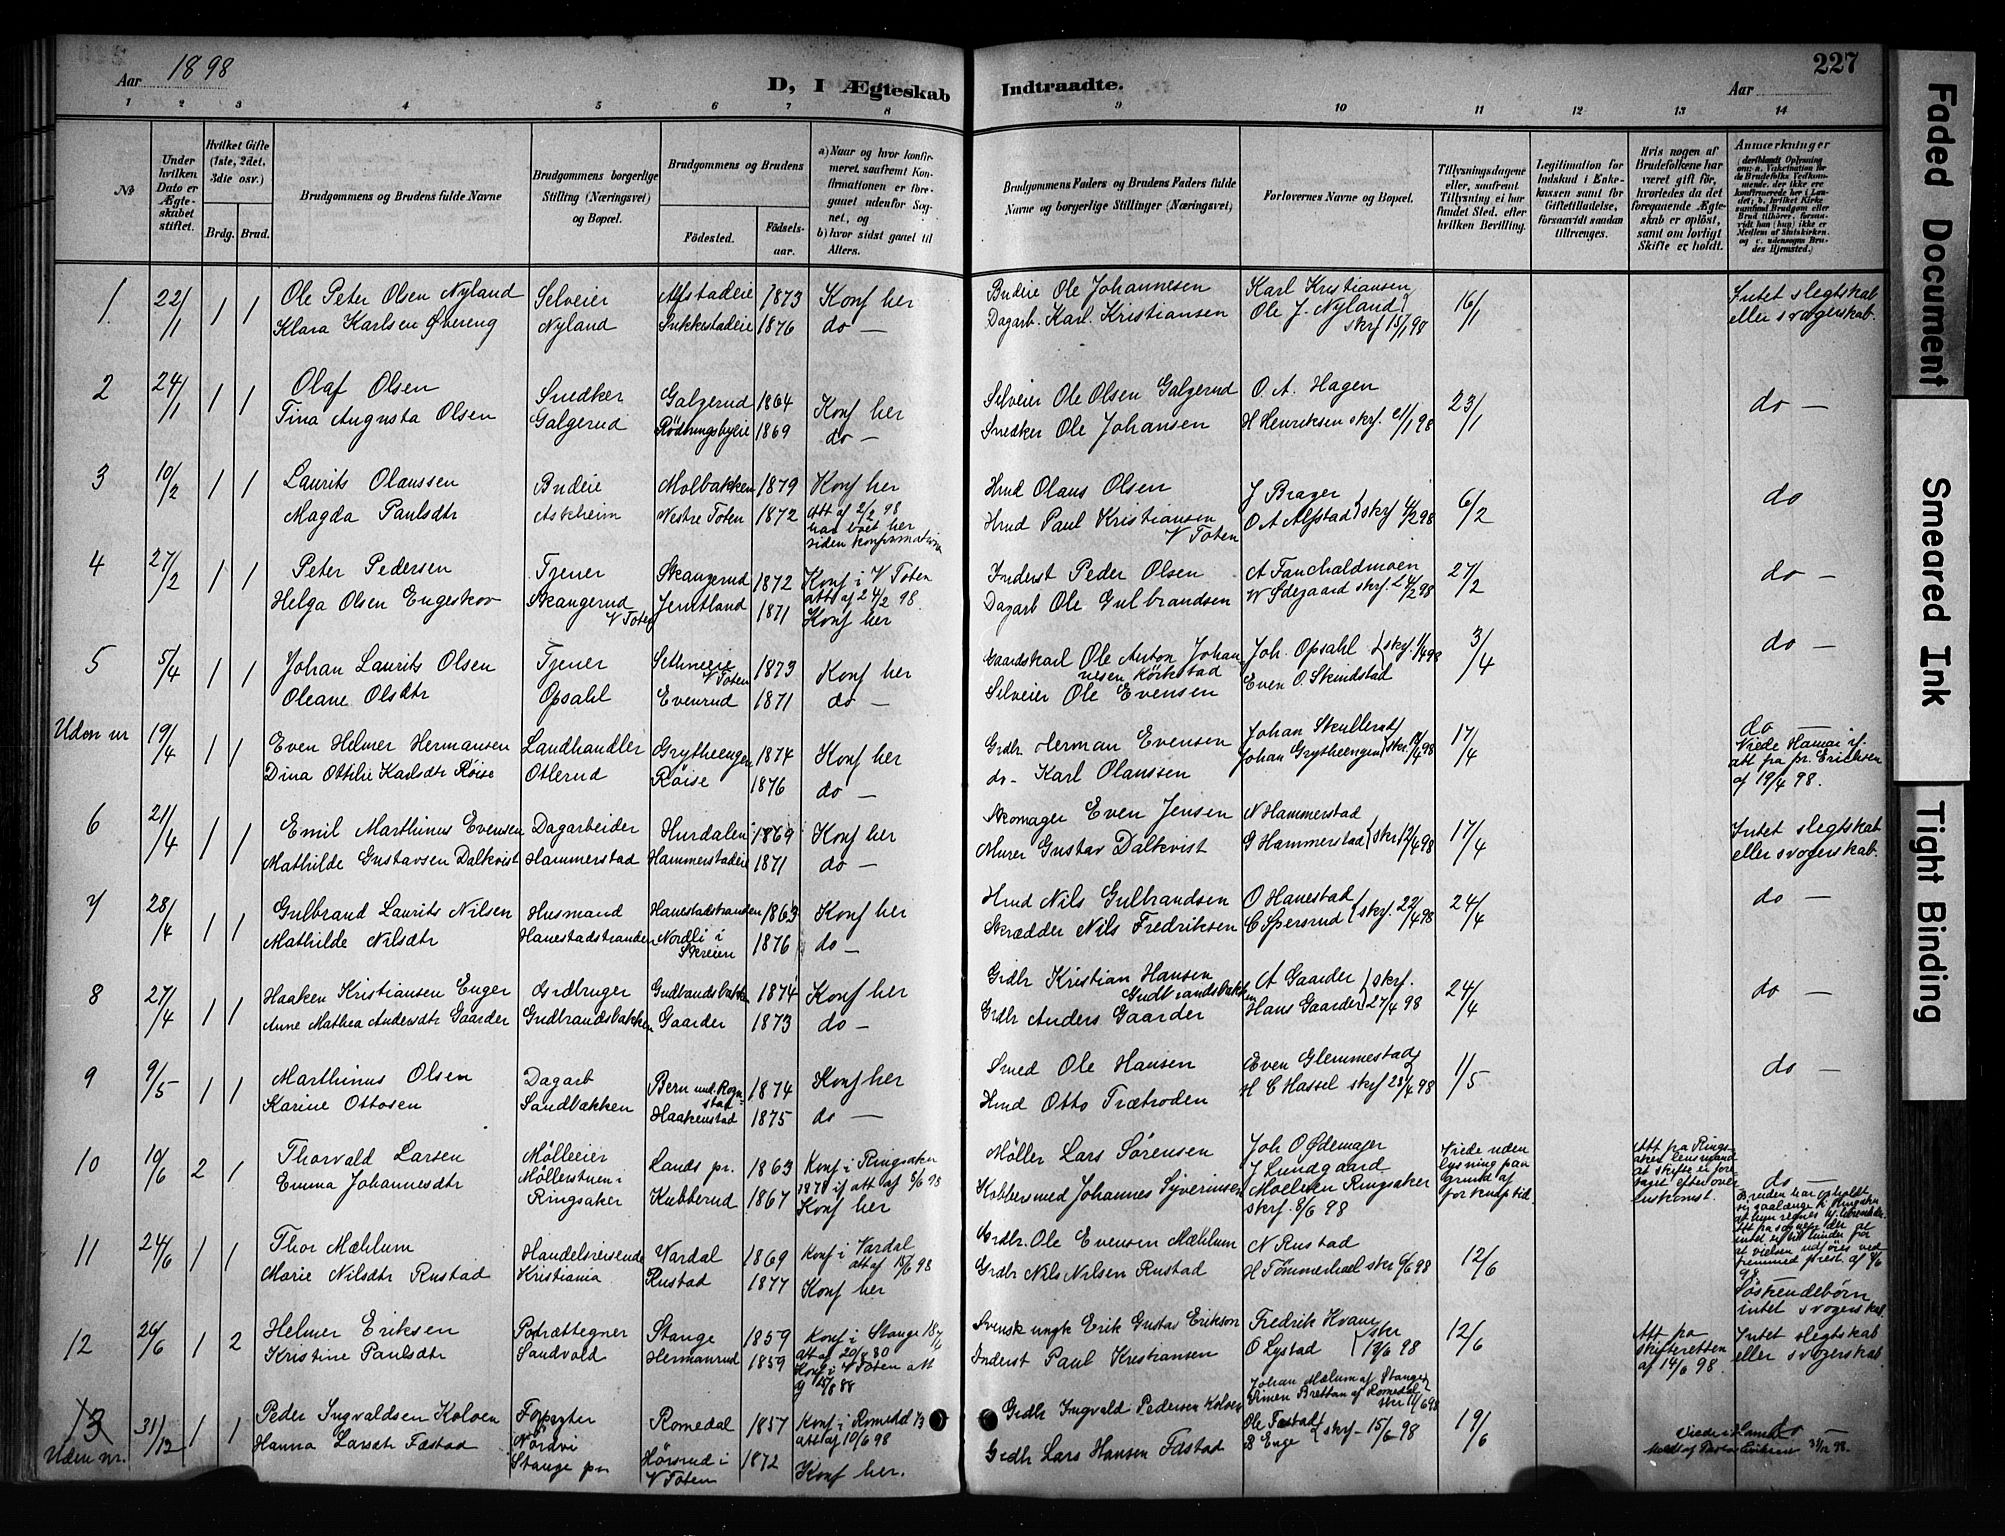 Aar 1898
D, I Ægteskab Indtraadte.
Aar
227
1 2 3 4 5 6 7 8 9 10 11 12 13 14
No
Under hvilken Dato er Ægteskabet stiftet.
Hvilket Gifte (1ste, 2det, 3die osv.)
Brdg. Brud.
Brudgommens og Brudens fulde Navne
Brudgommens borgerlige Stilling (Næringsvei) og Bopæl.
Brudgommens og Brudens
Födested.
Födselsaar.
a) Naar og hvor konfirmeret, saufremt Konfirmationen er foregaaet udenfor Sognet, og
b) hvor sidst gaaet til Alters.
Brudgommens Faders og Brudens Faders fulde Navne og borgerlige Stillinger (Næringsvei)
Forlovernes Navne og Bopæl.
Tillysningsdagene eller, saufremt Tillysning ei har fundet Sted, efter hvilken Bevilling.
Legitimation for Indskud i Enkekassen samt for Giftetilladelse, forsaavidt saadan tiltrænges.
Hvis nogen af Brudefolkene har været gift før, hvorledes da det foregaaende Ægteskab er oplöst, samt om lovligt Skifte er holdt.
Anmærkninger
1 22/1 1 1 Ole Peter Olsen Nyland Selveier Alfstadeie 1873 Konf her Budeie Ole Johannesen Karl Kristiansen 16/1 Intet slegtskab
Klara Karlsen Øvereng Nyland Sukkestadeie 1876 do — Dagarb. Karl Kristiansen Ole J. Nyland skrf 15/1 98 eller svogerskab.
2 24/1 1 1 Olaf Olsen Snedker Galgerud 1864 Konf her Selveier Ole Olsen Galgerud O. A. Hagen 23/1 do —
Tina Augusta Olsen Galgerud 1869 do — Snedker Ole Johansen H Henriksen skrf. 21/1 98
3 10/2 1 1 Laurits Olaussen Budeie Molbakken 1879 Konf her Hmd Olaus Olsen J Brager 6/2 do
Magda Paulsdtr Askheim Vestre Toten 1872 Att af 2/2 98 Hmd Paul Kristiansen O A Alfstad skrf 4/2 98
har boet her V Toten
siden konfirmation
4 27/2 1 1 Peter Pedersen Tjener Skangerud 1872 Konf i V Toten Inderst Peder Olsen A Fauchaldmoen 27/2 do —
att af 24/2 98.
Helga Olsen Engeskov Skangerud Jemtland 1871 Konf her Dagarb Ole Gulbrandsen W Ødegaard skrf. 24/2 98
V Toten
5 5/4 1 1 Johan Laurits Olsen Tjener Sethneeie 1873 Konf her Gaardskarl Ole Anton Johannesen Körkestad Joh. Opsahl skrf. 1/4 98 3/4 do —
V Toten
Oleane Olsdtr Opsahl Evenrud 1871 do — Selveier Ole Evensen Even O. Skindstad
Uden nr 19/4 1 1 Even Helmer Hermansen Landhandler Grytheengen 1874 Konf her Grdbr Herman Evensen Johan Skullerud 17/4 do —
Dina Ottilie Karlsdtr Röise Otlerud Röise 1876 do — do- Karl Olaussen Johan Grytheengen skr 14/4 98 Viede Hamar if.
att fra pr. Ericksen
af 19/4 98.
6 21/4 1 1 Emil Marthinus Evensen Dagarbeider Hurdalen 1869 Konf her Skomager Even Jensen N Hammerstad 17/4 Intet slegtskab
Mathilde Gustavsen Dalkvist Hammerstad Hammerstadeie 1871 do — Murer Gustav Dalkvist G Hammerstad skr 12/4 98 eller svogerskab.
7 28/4 1 1 Gulbrand Laurits Nilsen Husmand Hanestadstranden 1863 Konf her Hmd Nils Gulbrandsen O Hanestad 24/4 do —
Mathilde Nilsdtr Hanestadstranden Nordli i 1876 do — Skrædder Nils Fredriksen C Spersrud skrf. 22/4 98
Skreien
8 27/4 1 1 Haaken Kristiansen Enger Grdbruger Gudbrandsbakken 1874 Konf her Grdbr Kristian Hansen A Gaarder skrf. 24/4 do —
Gudbrandsbakken
Anne Mathea Andersdtr Gaarder Gudbrandsbakken Gaarder 1873 do — Grdbr Anders Gaarder Hans Gaarder 27/4 98
9 9/5 1 1 Marthinus Olsen Dagarb Bern und. Rognstad 1874 Konf her Smed Ole Hansen Even Glemmestad 1/5 do —
Karine Ottosen Sandbakken Haakenstad 1875 do — Hmd Otto Trætroden H C Hassel skrf 23/4 98
10 10/6 2 1 Thorvald Larsen Mölleeier Lands pr. 1863 Konf i Ringsaker Möller Lars Sörensen Joh O Ødemager Viede uden Att fra Ringsaker lensmand
Emma Johannesdtr Möllerstuen i Kubberud 1867 1878 if att af 6/6 98 Kobbersmed Johannes Syversen J Lundgaard lysning paa at skifte er foretaget efter overenskomst.
Ringsaker Konf her Moelven Ringsaker grund af do —
skrf. 8/6 98 for knap tid
11 24/6 1 1 Thor Mæhlum Handelsreisende Vardal 1869 Konf i Vardal Grdbr. Ole Evensen Mæhlum N Rustad 12/6
att af 15/6 98
Marie Nilsdtr Rustad Kristiania Rustad 1877 Konf her Grdbr Nils Nilsen Rustad H Tömmerhæl skr 6/6 98 Söskendebörn
intet svogerskab
12 26/6 1 2 Helmer Eriksen Potrættegner Stange 1859 Konf i Stange Svensk ungk Erik Gustav Erikson Fredrik Kvam 12/6 Att fra Intet slegtskab
Kristine Paulsdtr Sandvold Hermanrud 1859 Konf i V Toten att Inderst Paul Kristiansen O Lystad skr 12/6 98 skifteretten eller svogerskab
af 14/6 98
13 31/12 1 1 Peder Ingvaldsen Kolven Forpagter Romedal 1857 Konf i Romedal Grdbr Ingvald Pedersen Kolven Johan Mælum af Stange 19/6 do —
att af 10/6 98 Simen Brettan af Romedal
Uden nr. Hanna Larsdtr Fastad Nordvi Hörsrud i 1872 Konf her. Grdbr Lars Hansen Fastad Ole Fastad skrf. 15/6 98 Viede i Hamar
Stange pr V Toten B Enge
Faded Document
Smeared Ink
Tight Binding